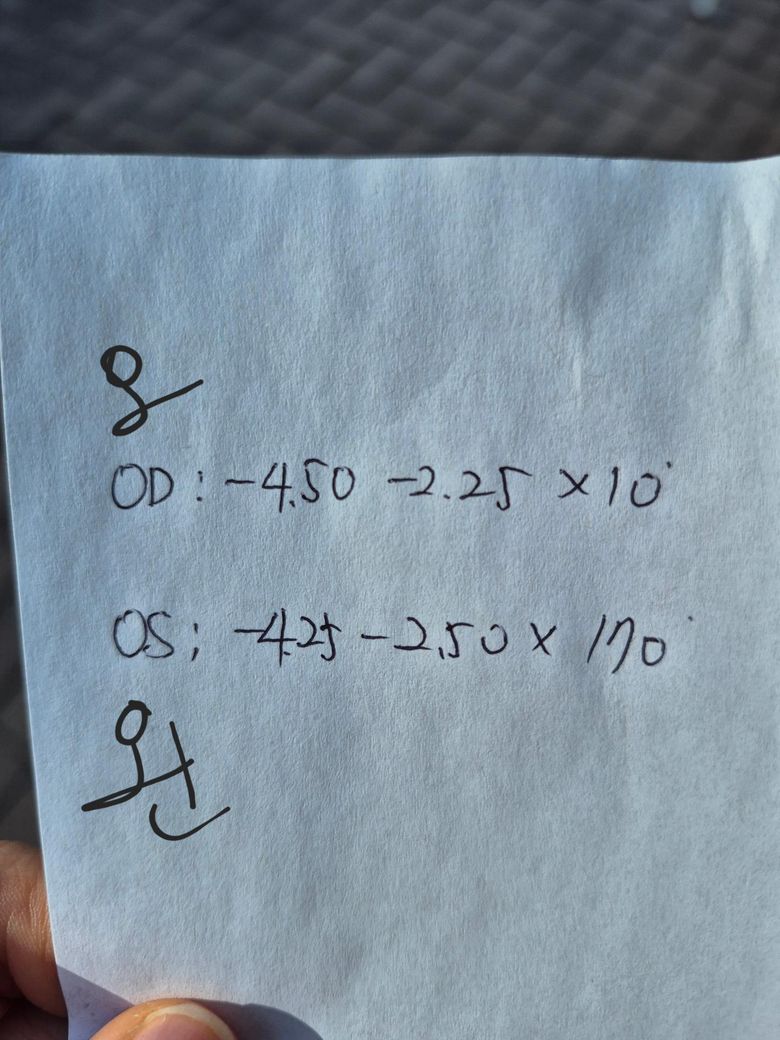 오
OD: -4.50 -2.25 × 10°
OS: -4.25 -2.50 × 170°
왼